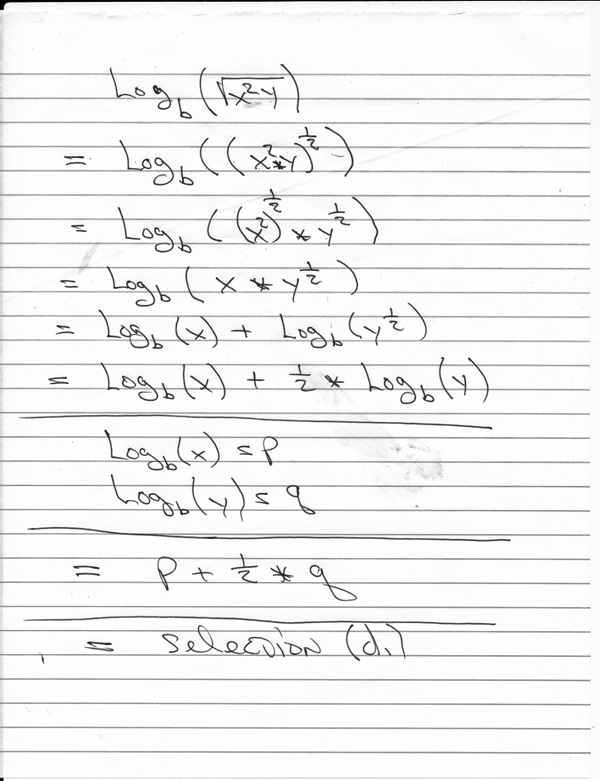 Log_b(√(x²y))
= Log_b((x²*y)^½)
= Log_b((x²)^½ * y^½)
= Log_b(x * y^½)
= Log_b(x) + Log_b(y^½)
= Log_b(x) + ½ * Log_b(y)
Log_b(x) = p
Log_b(y) = q
= p + ½ * q
= selection (d.)